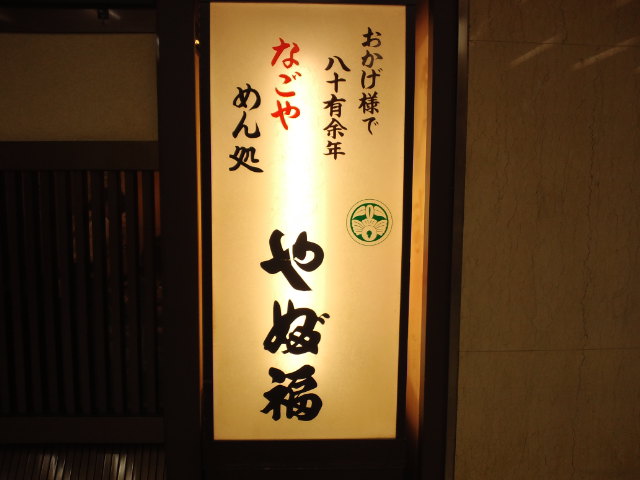 おかげ様で
八十有余年
なごや
めん処
やぶ福